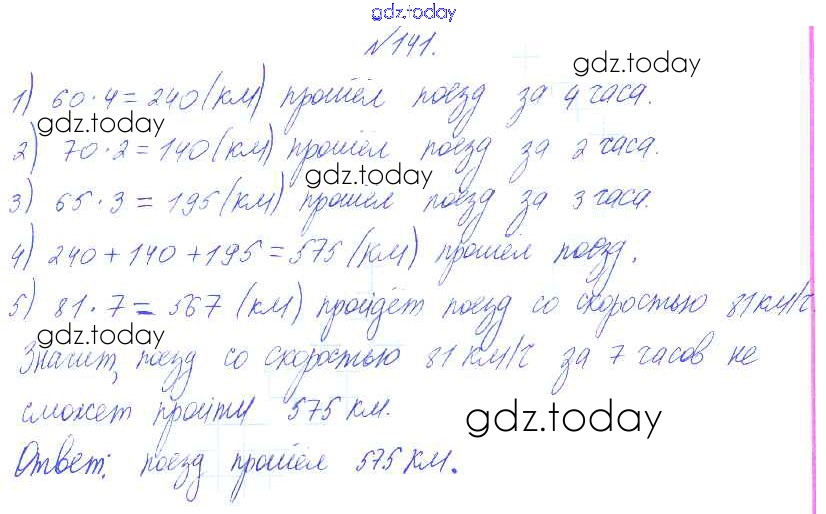 gdz.today
№141.
gdz.today
1) 60·4=240(км) прошёл поезд за 4 часа.
gdz.today
2) 70·2=140(км) прошёл поезд за 2 часа.
gdz.today
3) 65·3=195(км) прошёл поезд за 3 часа.
4) 240+140+195=575(км) прошёл поезд.
5) 81·7=567 (км) пройдёт поезд со скоростью 81км/ч.
gdz.today
Значит, поезд со скоростью 81 км/ч за 7 часов не
сможет пройти 575 км.
gdz.today
Ответ: поезд прошёл 575 км.